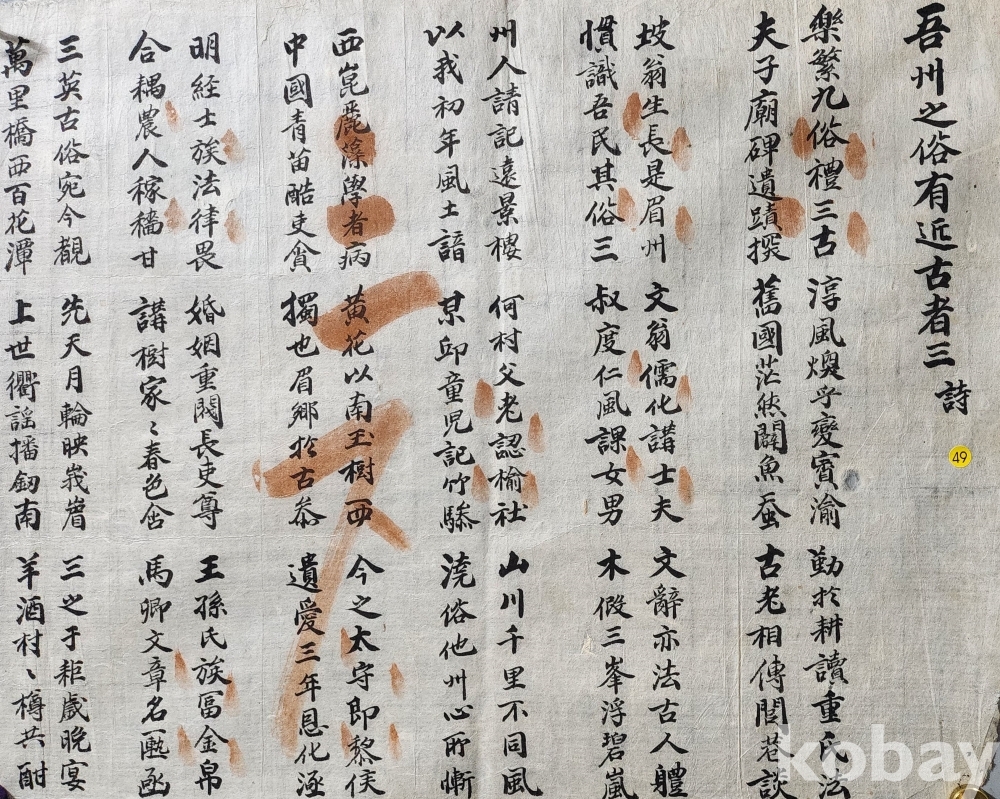 吾州之俗有近古者三 詩
樂繁九俗禮三古
夫子廟碑遺蹟撰
淳風煥乎變賓渝
舊國茫然闢魚蚕
勤於耕讀重氏法
古老相傳閭巷談
坡翁生長是眉州
慣識吾民其俗三
文翁儒化講士夫
叔度仁風課女男
文辭亦法古人軆
木假三峯浮碧嵐
州人請記遠景樓
以我初年風土諳
何村父老認榆社
某邱童児記竹驂
山川千里不同風
澆俗他州心所慚
西崑麗藻學者病
中國青苗酷吏貪
黃花以南玉樹西
獨也眉鄉於古恭
今之太守即黎侯
遺愛三年恩化涵
明経士族法律畏
合耦農人稼穡甘
婚姻重閥長吏尊
講樹家〻春色含
王孫氏族冨金帛
馬卿文章名匭函
三英古俗宛今覩
萬里橋西百花潭
先天月輪映峩嵋
上世衢謠播釰南
三之于耟戱晩宴
羊酒村〻樽共酣
49
kobay